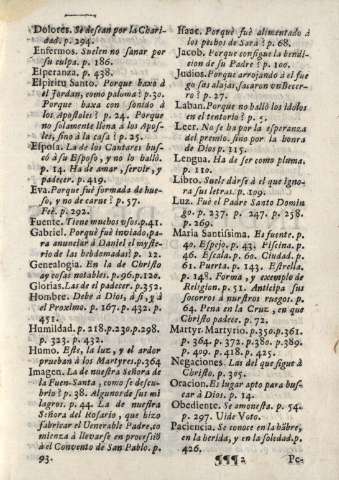 Dolores. Se desean por la Chari-
dad. p. 294.
Enfermos. Suelen no sanar por
su culpa. p. 186.
Esperanza. p. 438.
Espiritu Santo. Porque baxò à
el Jordan, como paloma? p. 30.
Porque baxa con sonido à
los Apostoles? p. 24. Porque
no solamente llena à los Apos-
les, sino à la casa? p. 25.
Espola. La de los Cantares bus-
cò à su Esposo, y no lo hallò.
p. 14. Ha de amar, servir, y
padecer. p. 419.
Eva. Porque fuè formada de hue-
so, y no de carne? p. 57.
Feè. p. 292.
Fuente. Tiene muchos usos. p. 41.
Gabriel. Porquè fuè inviado, pa-
ra anunciar à Daniel el myste-
rio de las hebdomadas? p. 12.
Genealogia. En la de Christo
ay cosas notables. p. 96. p. 120.
Glorias. Las de el padecer. p. 352.
Hombre. Debe à Dios, à sì, y à
el Proximo. p. 167. p. 432. p.
451.
Humildad. p. 218. p. 230. p. 298.
p. 323. p. 432.
Homo. Este, la luz, y el ardor
prueban à los Martyres. p. 364
Imagen. La de nuestra Señora de
la Fuen-Santa, como se descu-
briò? p. 38. Algunos de sus mi
lagros. p. 44. La de nuestra
Señora del Rosario, que hizo
fabricar el Venerable Padre, co
mienza à llevarse en procesiõ
à el Convento de San Pablo. p.
93.
Isaac. Porquè fuè alimentado à
los pechos de Sara? p. 68.
Jacob. Porque consigue la bendi-
cion de su Padre? p. 100.
Judios. Porque arrojando à el fue
go las alajas, sacaron un Becer-
ro? p. 27.
Laban. Porque no hallò los idolos
en el tentorio? p. 5.
Leer. No se ha por la esperanza
del premio, sino por la honra
de Dios. p. 115.
Lengua. Ha de ser como pluma.
p. 110.
Libro. Suele dàrse à el que igno-
ra sus letras. p. 109.
Luz. Fuè el Padre Santo Domin
go. p. 237. p. 247. p. 258.
p. 269.
Maria Santissima. Es fuente. p.
40. Espejo. p. 43. Piscina. p.
46. Escala. p. 60. Ciudad. p.
61. Puerta. p. 143. Estrella.
p. 148. Forma, y exemplo de
Religion. p. 51. Anticipa sus
socorros à nuestros ruegos. p.
64. Pena en la Cruz, en que
Christo padece. p. 72.
Martyr. Martyrio. p. 350. p. 361.
p. 364. p. 372. p. 380. p. 389.
p. 409. p. 418. p. 425.
Negaciones. Las del que sigue à
Christo. p. 305.
Oracion. Es lugar apto para bus-
car à Dios. p. 14.
Obediente. Se amonesta. p. 54.
p. 297. Vide Voto.
Paciencia. Se conoce en la hãbre,
en la herida, y en la soledad. p.
426.
¶¶¶2 Pe-